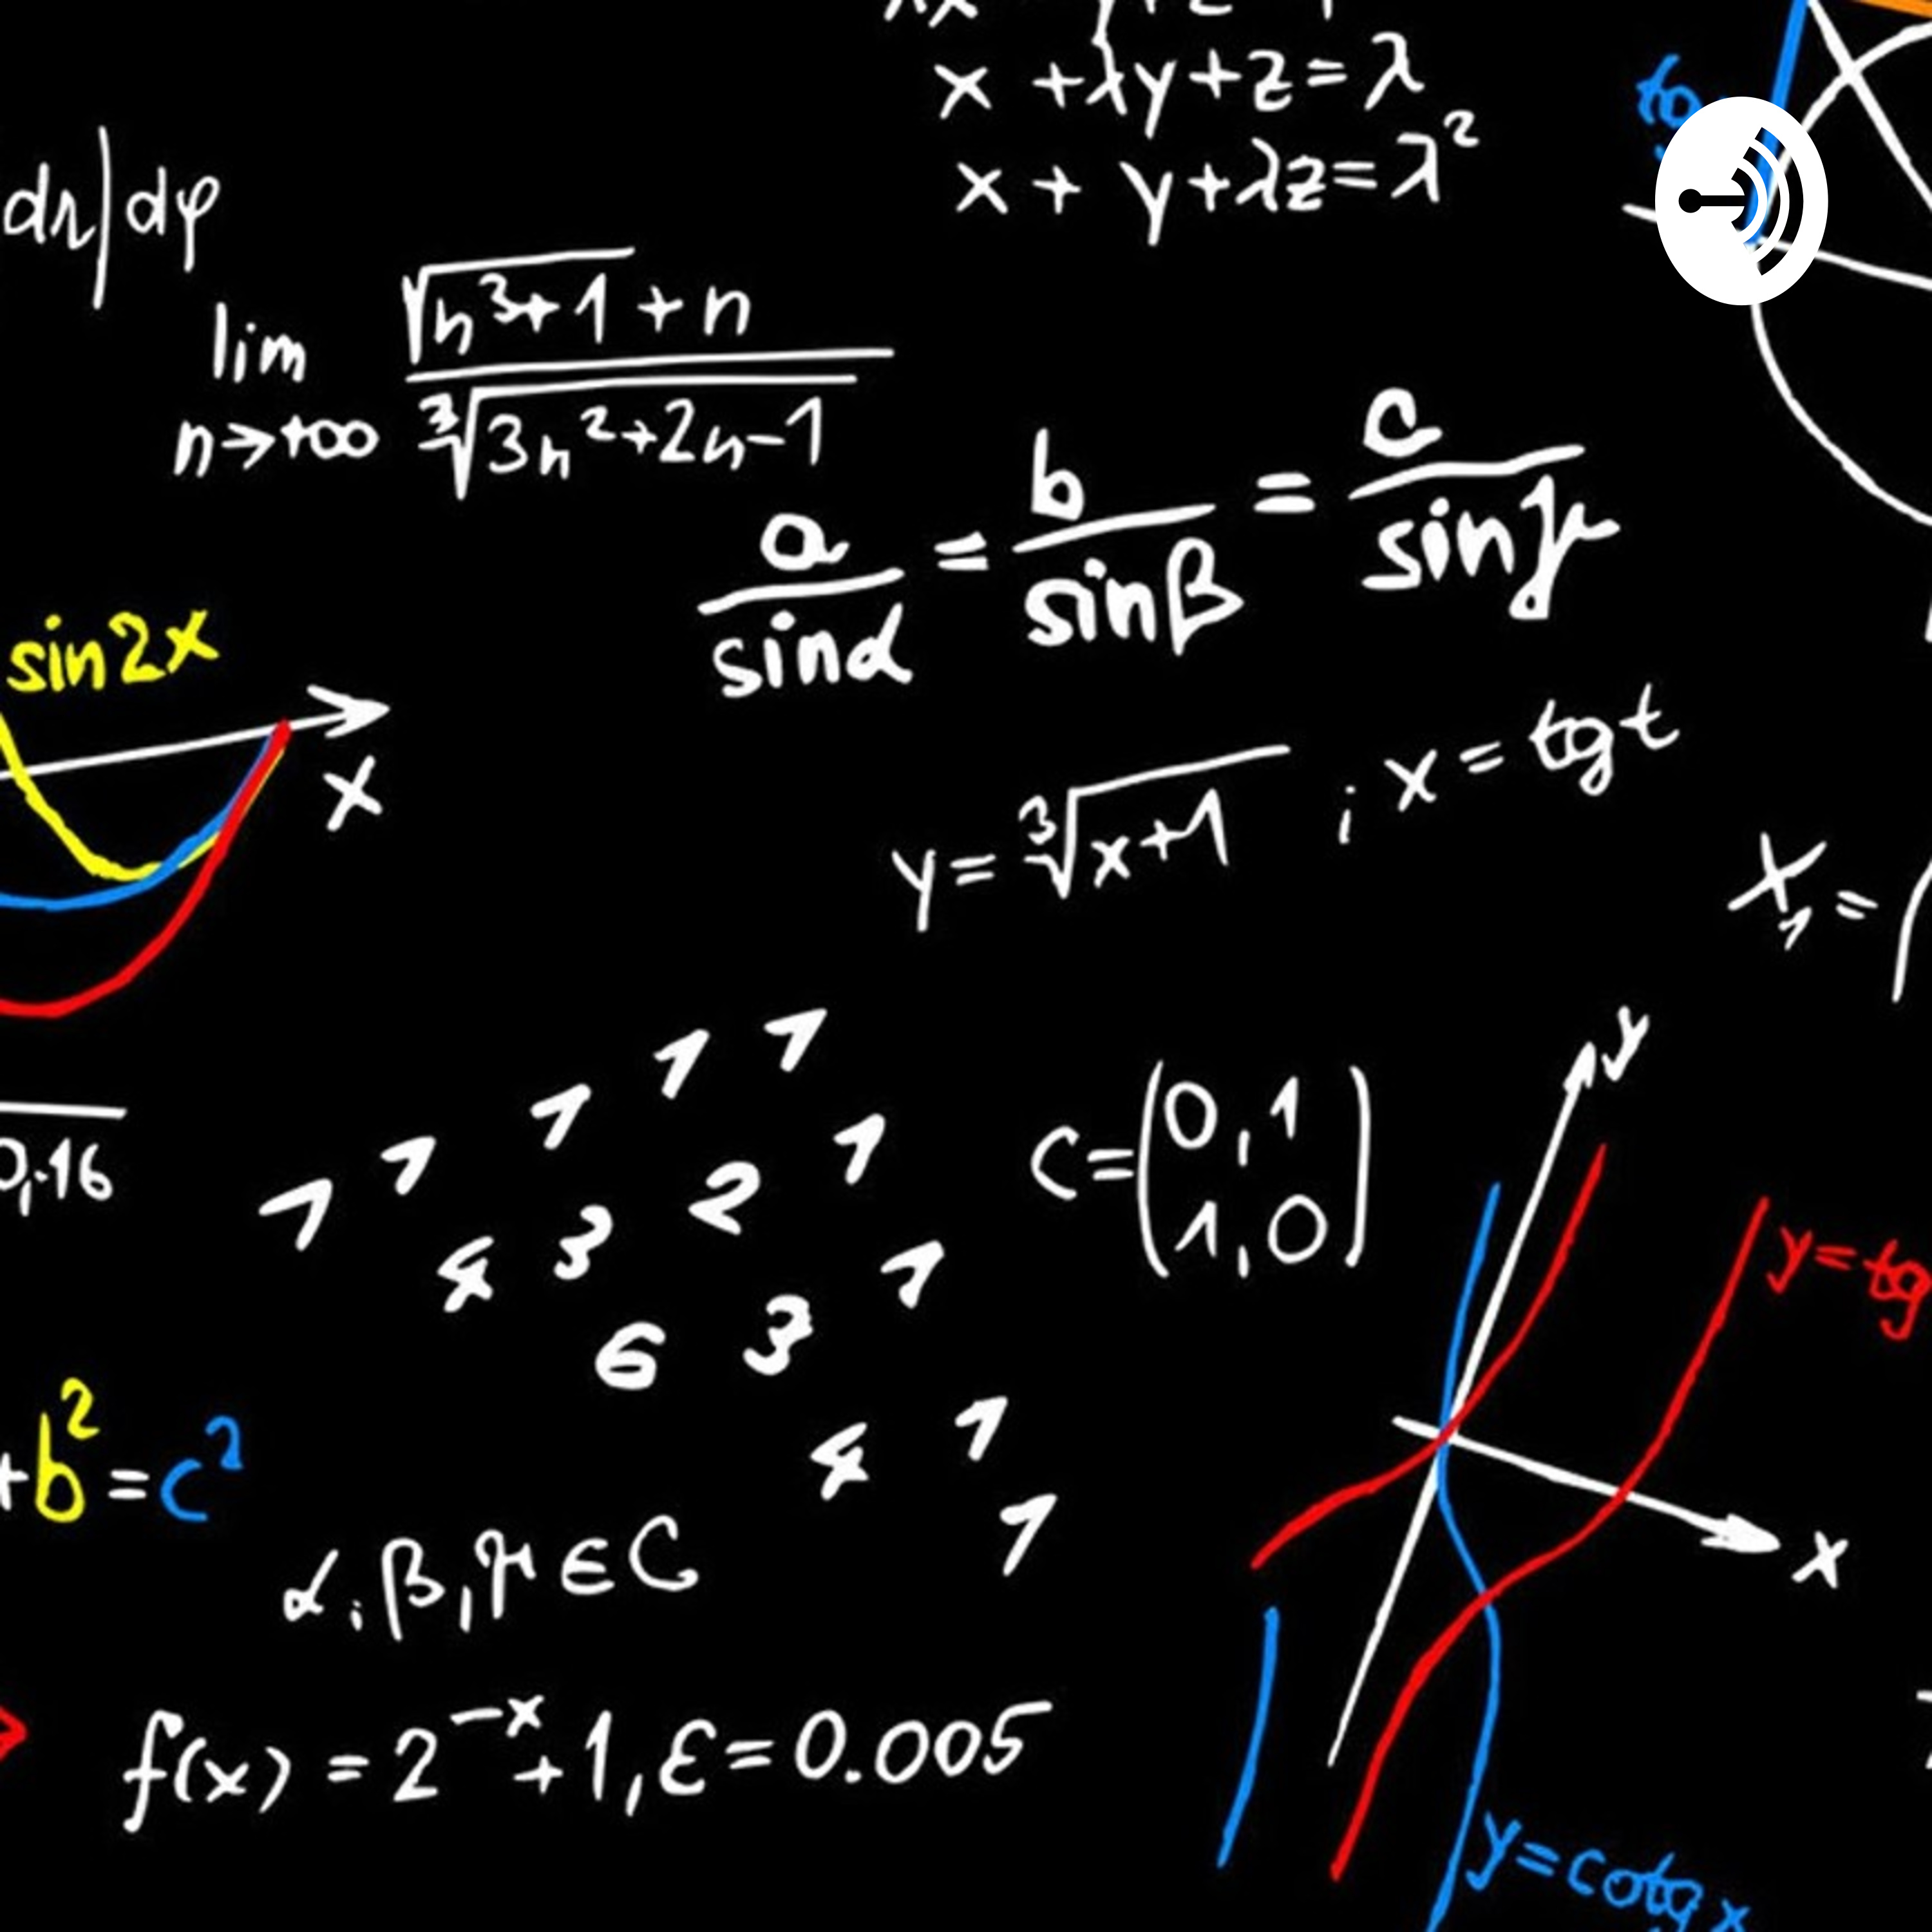 x + λy + z = λ
x + y + λz = λ²
dr | dφ
lim n→+∞ (√(n³+1) + n) / ∛(3n²+2n-1)
a/sinα = b/sinβ = c/sinγ
sin2x
x
y = ∛(x+1) ; x = tg t
X₁ = (
0,16
1 1 1 1 1
4 3 2 1
6 3 1
4 1
1
C = (0,1
1,0)
y
y = tg
x
+ b² = c²
α, β, γ ∈ C
f(x) = 2⁻ˣ + 1, ε = 0.005
y = cotg x